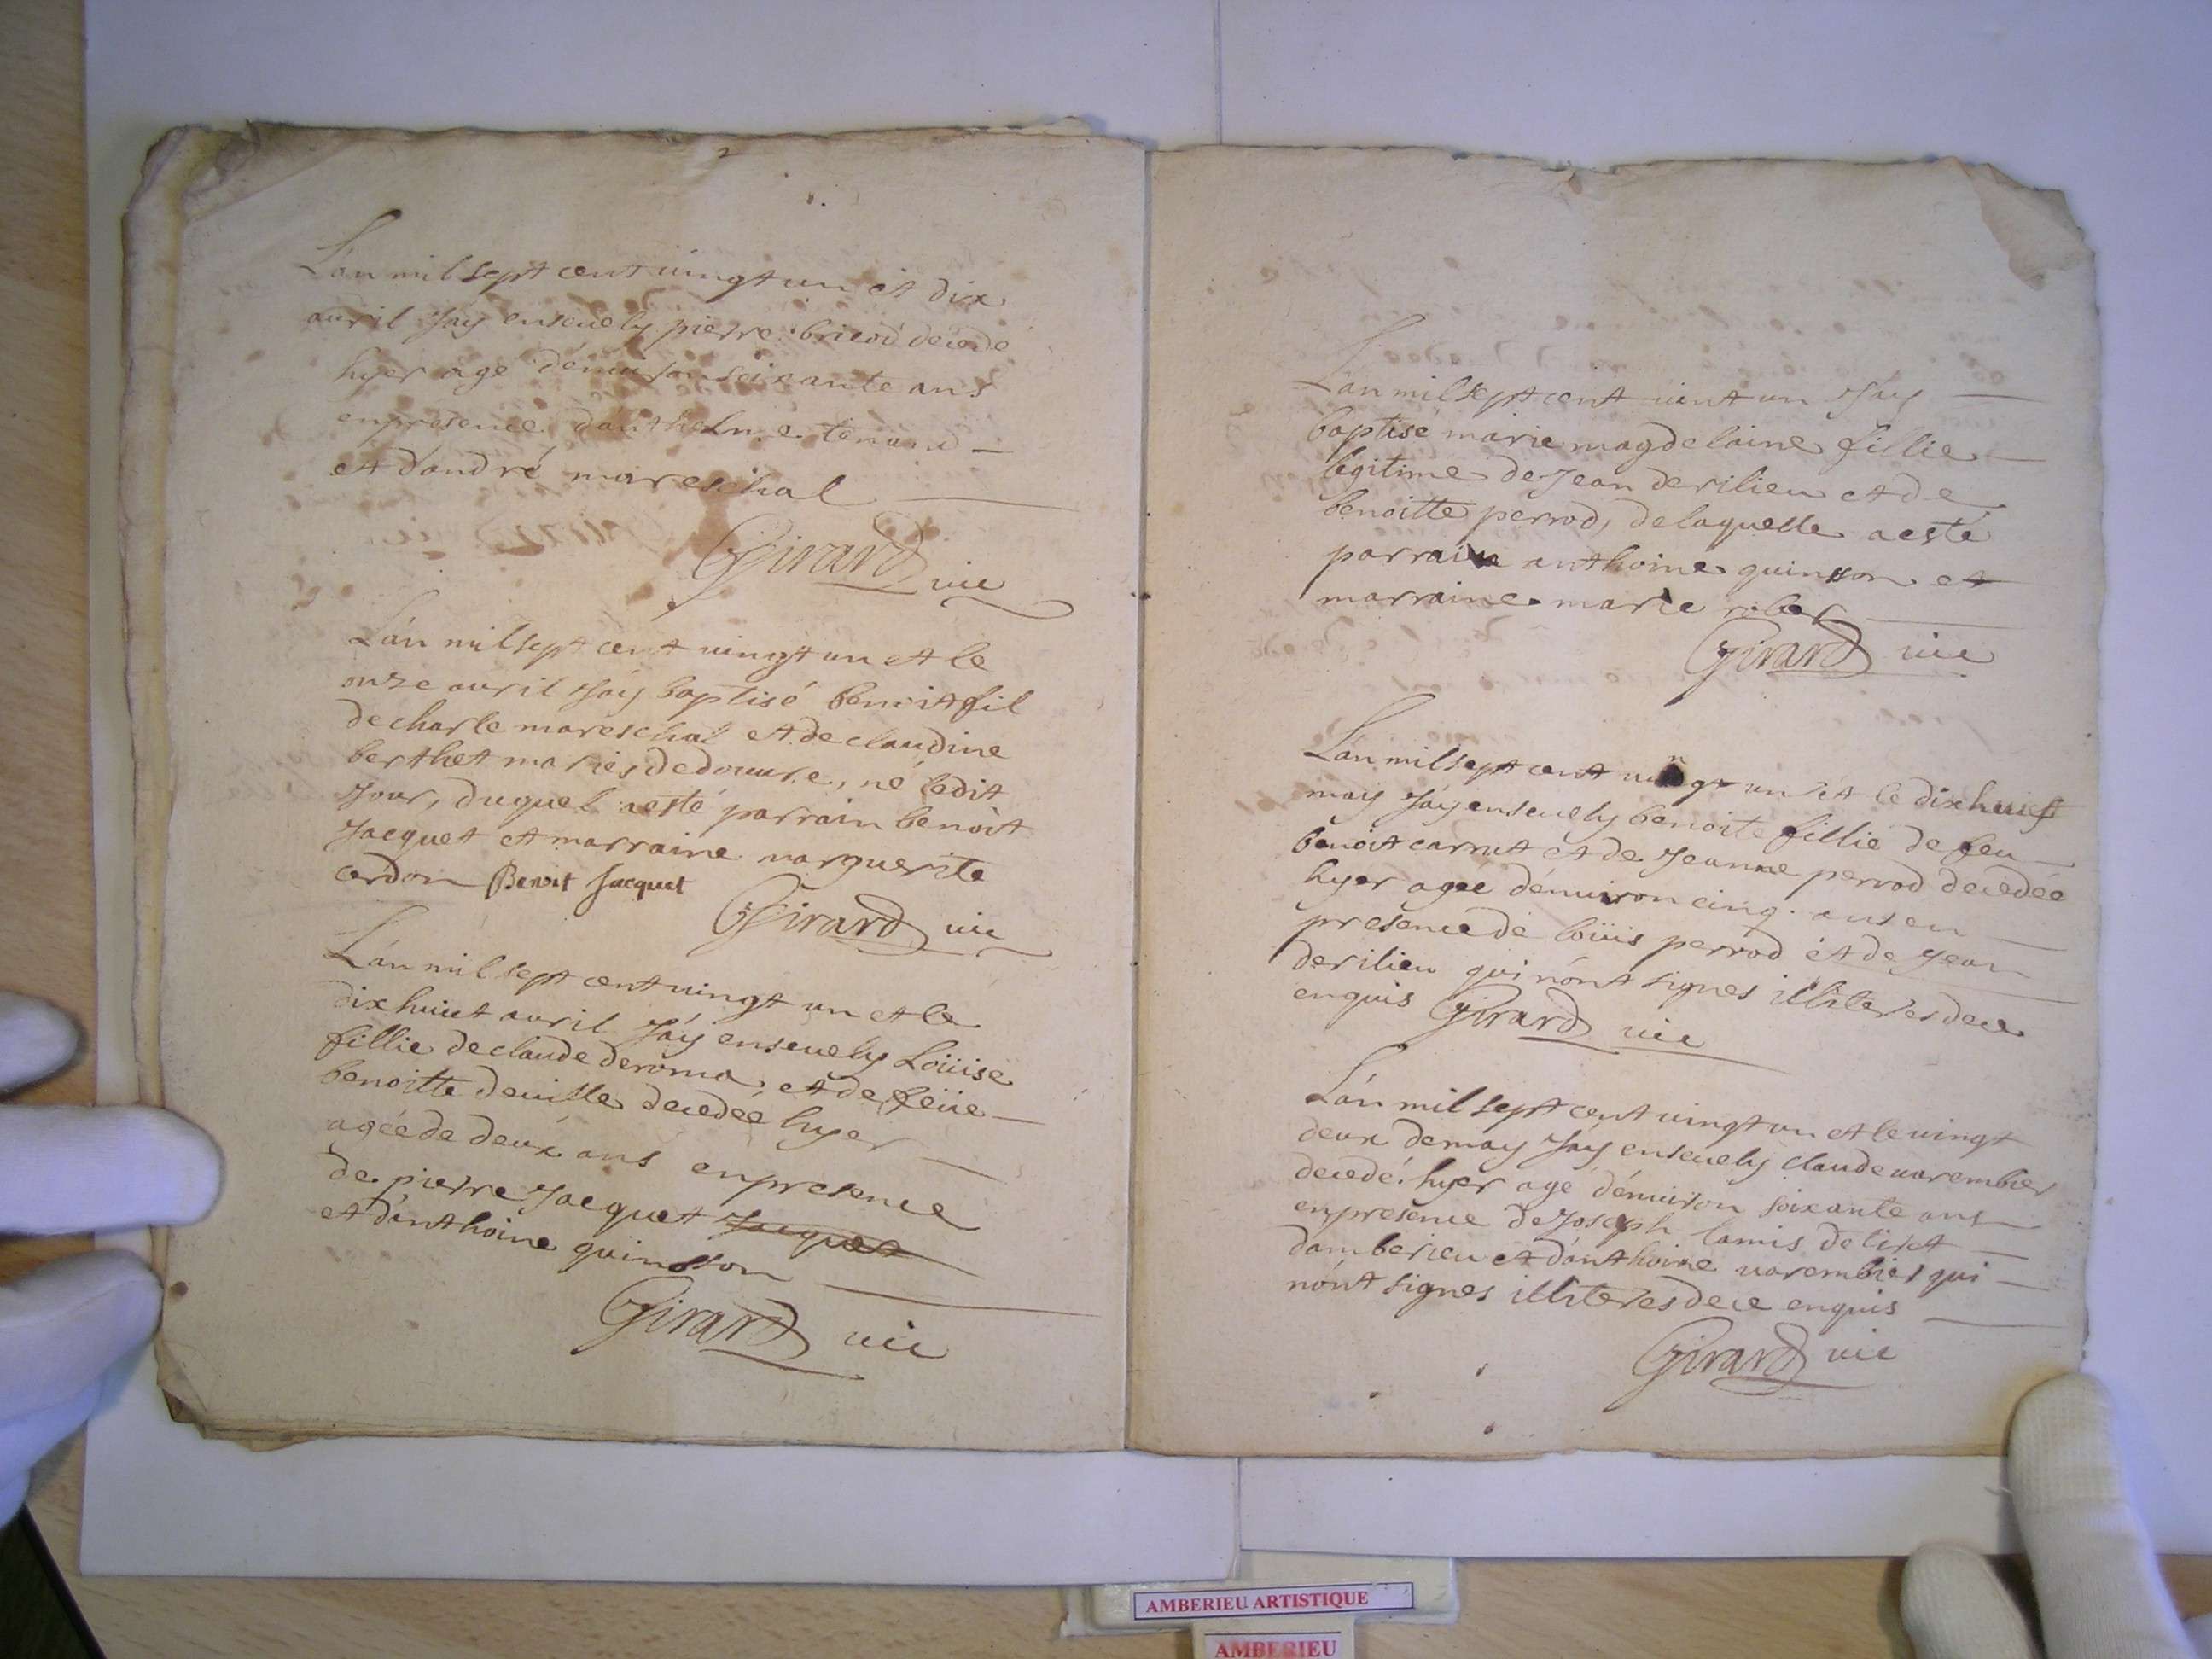 L'an mil sept cent uingt un et dix
auril Jáy enseuely pierre bricod décédé
hyer age d'enuiron soixante ans
en presence d'anthelme tenand
et d'andré mareschal
Girard uic
L'an mil sept cent uingt un et le
onze auril Jáy baptisé benoit fil
de charle mareschal et de claudine
berthet mariés de douure, né ledit
Jour, duquel a esté parrain benoit
Jacquet et marraine marguerite
cardon Benoit Jacquet
Girard uic
L'an mil sept cent uingt un et le
dixhuict auril Jáy enseuely Loüise
fillie de claude deroma et de feüe
benoitte deuille decedée hyer
agée de deux ans en presence
de pierre Jacquet Jacquet
et d'anthoine quinsson
Girard uic
L'an mil sept cent uint un Jáy
baptisé marie magdelaine fillie
legitime de Jean derilieu et de
benoitte perrod, de laquelle a esté
parrain anthoine quinsson et
marraine marie rober
Girard uic
L'an mil sept cent uingt un et le dixhuict
may Jáy enseuely benoite fillie de feu
benoit carrut et de Jeanne perrod decedée
hyer agee d'enuiron cinq ans en
presence de loüis perrod et de Jean
derilieu qui n'ont signes illiteres de ce
enquis Girard uic
L'an mil sept cent uingt un et le uingt
deux de may Jáy enseuely claude uarembier
decedé hyer agé d'enuiron soixante ans
en presence de Joseph lamis de tiret
damberieu et d'anthoine uarembier qui
n'ont signes illiteres de ce enquis
Girard uic
AMBERIEU ARTISTIQUE
AMBERIEU